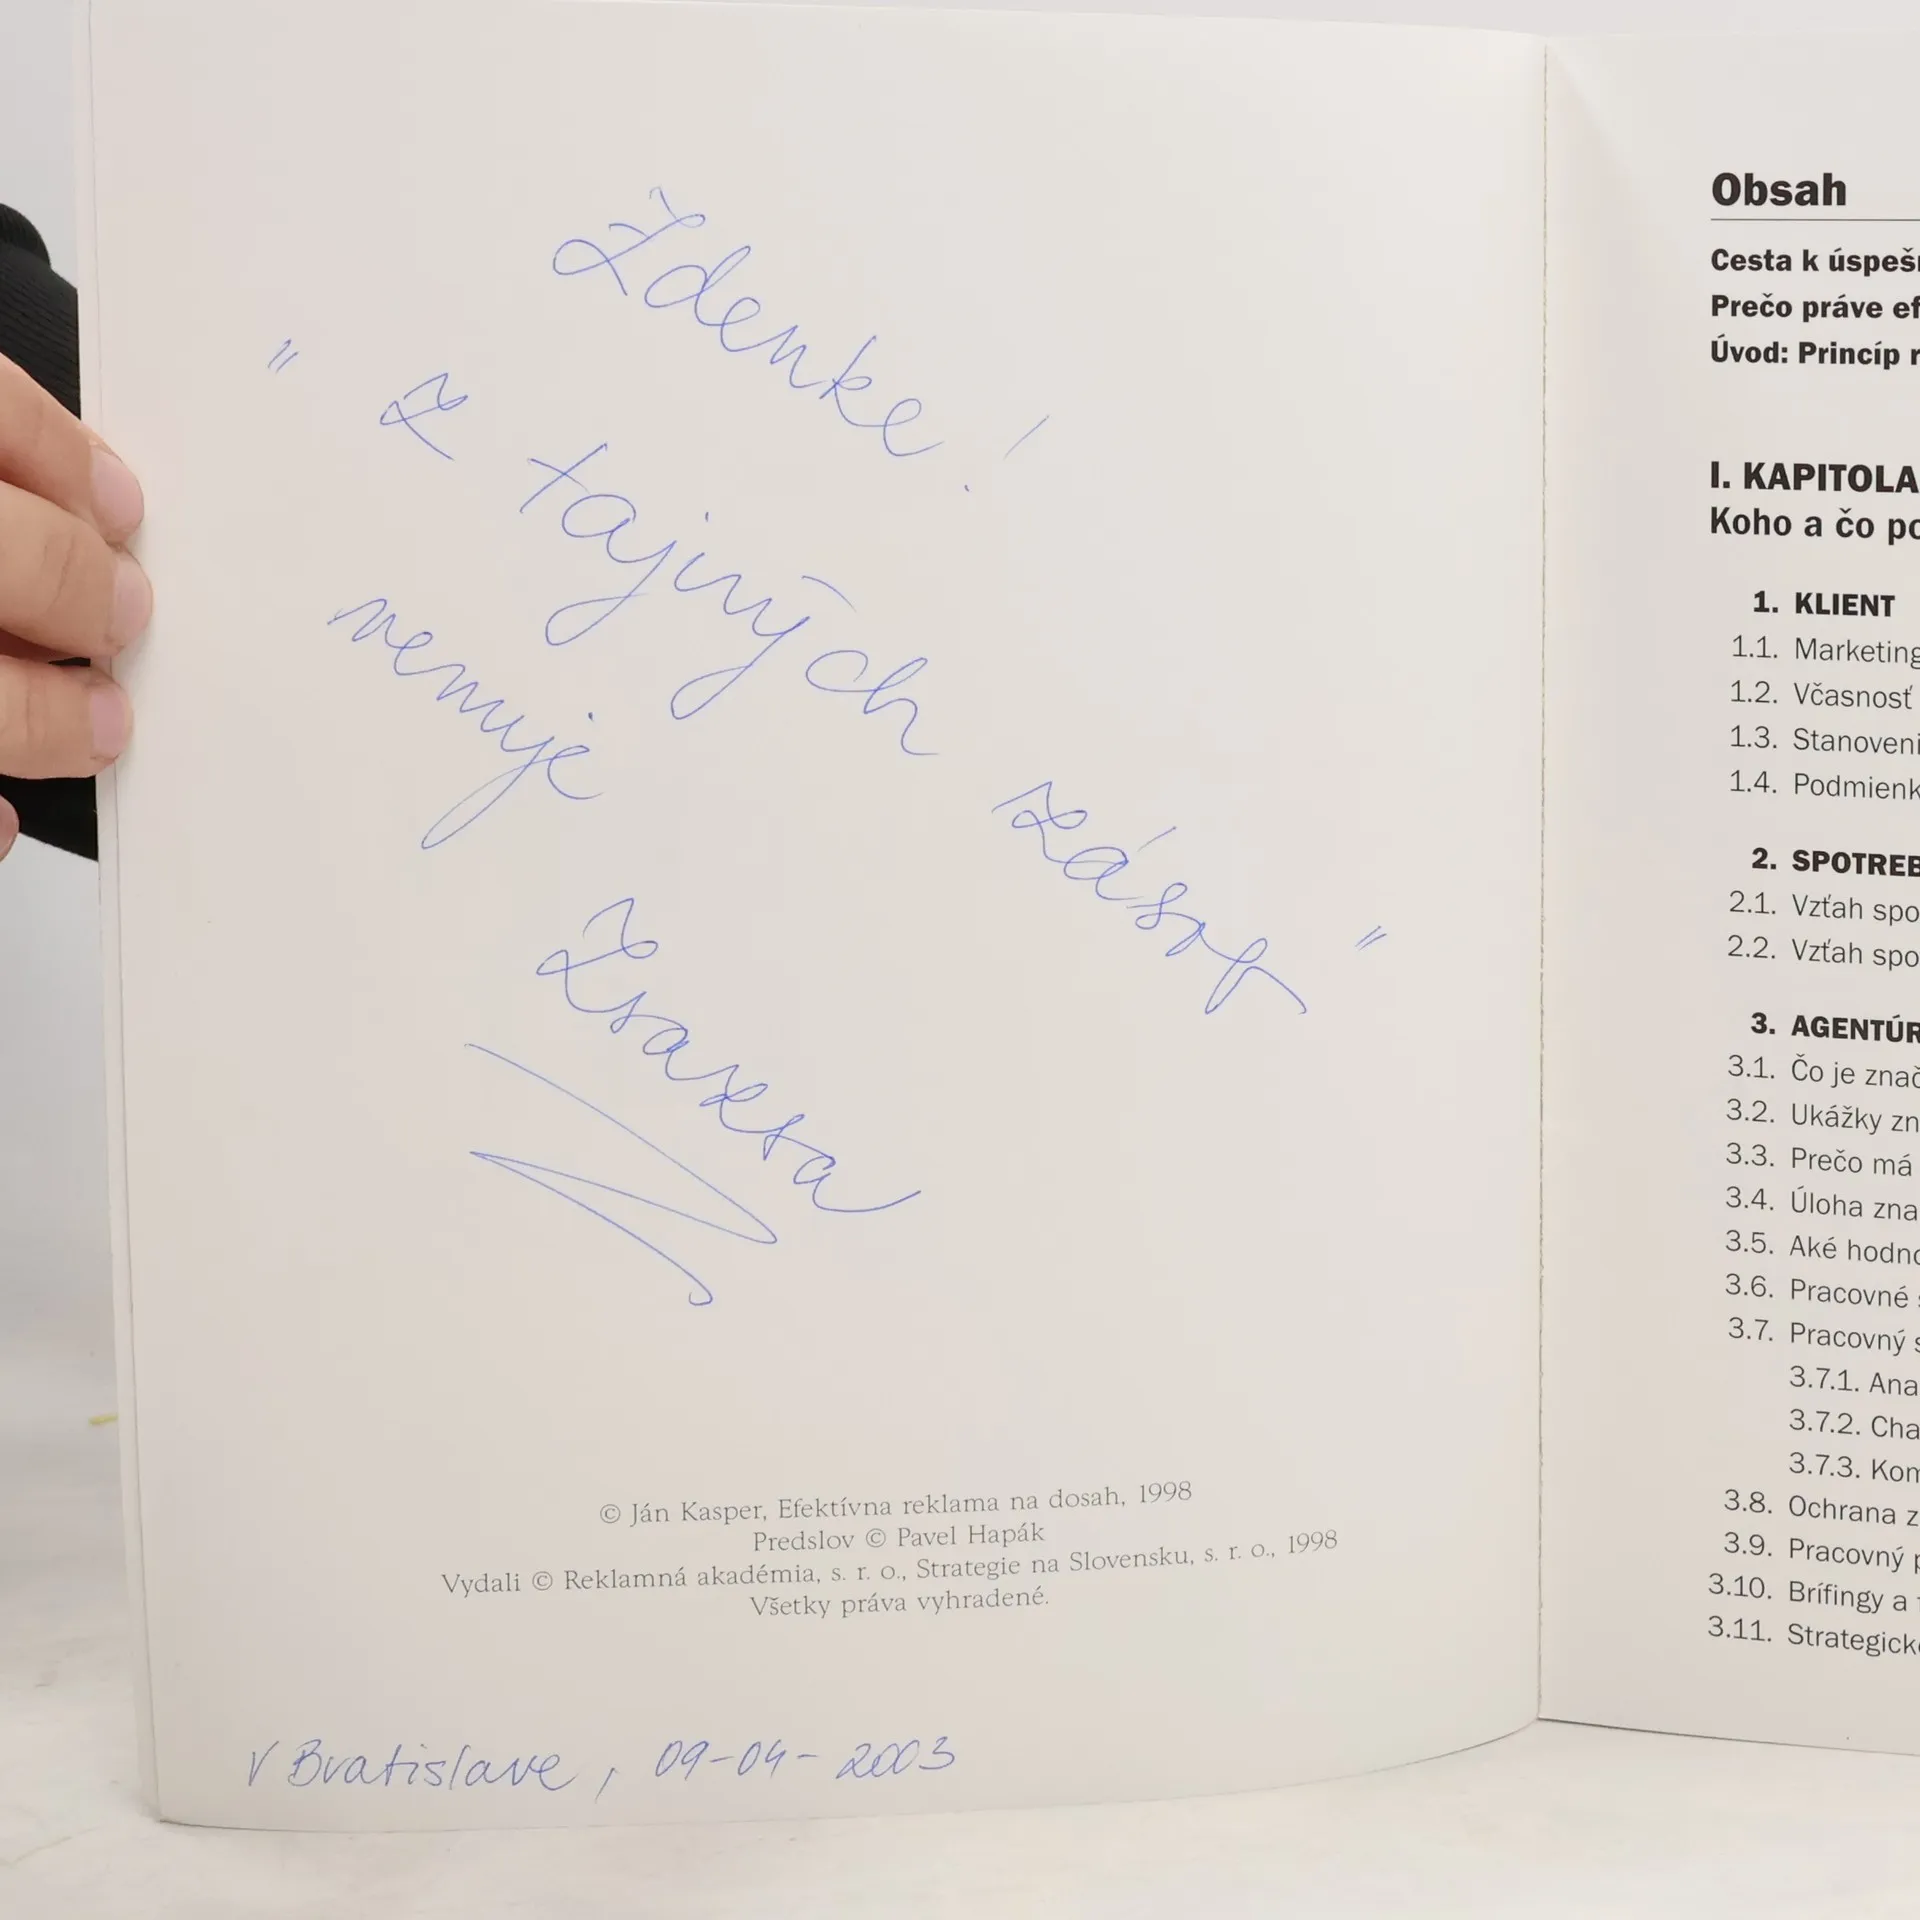 Zdenke!
" Z tajných zásob "
venuje
© Ján Kasper, Efektívna reklama na dosah, 1998
Predslov © Pavel Hapák
Vydali © Reklamná akadémia, s. r. o., Strategie na Slovensku, s. r. o., 1998
Všetky práva vyhradené.
V Bratislave, 09-04-2003
Obsah
Cesta k úspeš
Prečo práve ef
Úvod: Princíp r
I. KAPITOLA
Koho a čo po
1. KLIENT
1.1. Marketing
1.2. Včasnosť
1.3. Stanoveni
1.4. Podmienk
2. SPOTREB
2.1. Vzťah spo
2.2. Vzťah spo
3. AGENTÚR
3.1. Čo je znač
3.2. Ukážky zn
3.3. Prečo má
3.4. Úloha zna
3.5. Aké hodno
3.6. Pracovné s
3.7. Pracovný s
3.7.1. Ana
3.7.2. Cha
3.7.3. Kom
3.8. Ochrana z
3.9. Pracovný p
3.10. Brífingy a
3.11. Strategick